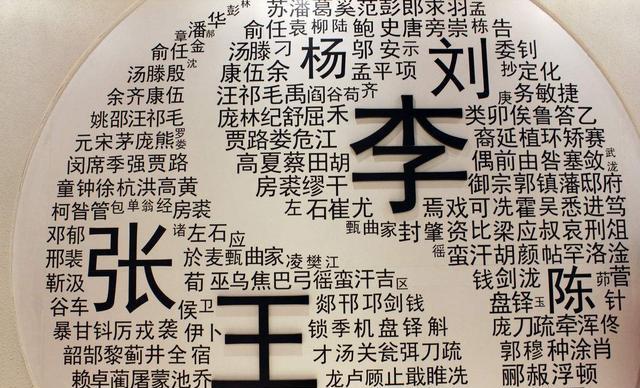 苏潘葛奚范彭郎求羽孟
彭 林
华
潘 郝
俞任袁柳陆鲍史唐旁崇栋告
章 金
俞任
汤滕刁杨邬安示刘委钊
沈
汤滕殷
康伍余孟平项抄定化
余齐康伍
汪祁毛禹阎谷苟齐
庚务敏捷
姚邵汪祁毛
庞林纪舒屈禾李类卯俟鲁答乙
元宋茅庞熊罗娄
贾路娄危江
裔延植环矫赛
闵席季强贾路
高夏蔡田胡
偶前由咎塞敛武龙
童钟徐杭洪高黄
房裘缪干
御宗郭镇藩邸府
柯昝管包单翁经房裘
左石崔尤
焉戏可冼霍吴悉进笃
甄曲家封肇资比梁应叔哀刑俎
邓郁张诸左石应
徭蛮汗胡颜帖罕洛淦
邢裴
於麦甄曲家凌樊江
钱剑泷陈茆菅
靳汲
荀巫乌焦巴弓徭蛮汗吉区
谷车
侯卫王郯邗邛剑钱
盘铎玉针
暴甘钭厉戎袭伊卜
锁季机盘铎斛
庞刀疏牵浑佟
韶郜黎蓟井全宿
才汤关瓮弭刀疏
郭穆种涂肖
赖卓蔺屠蒙池乔
龙卢顾止戢睢冼
郦郝浮顿